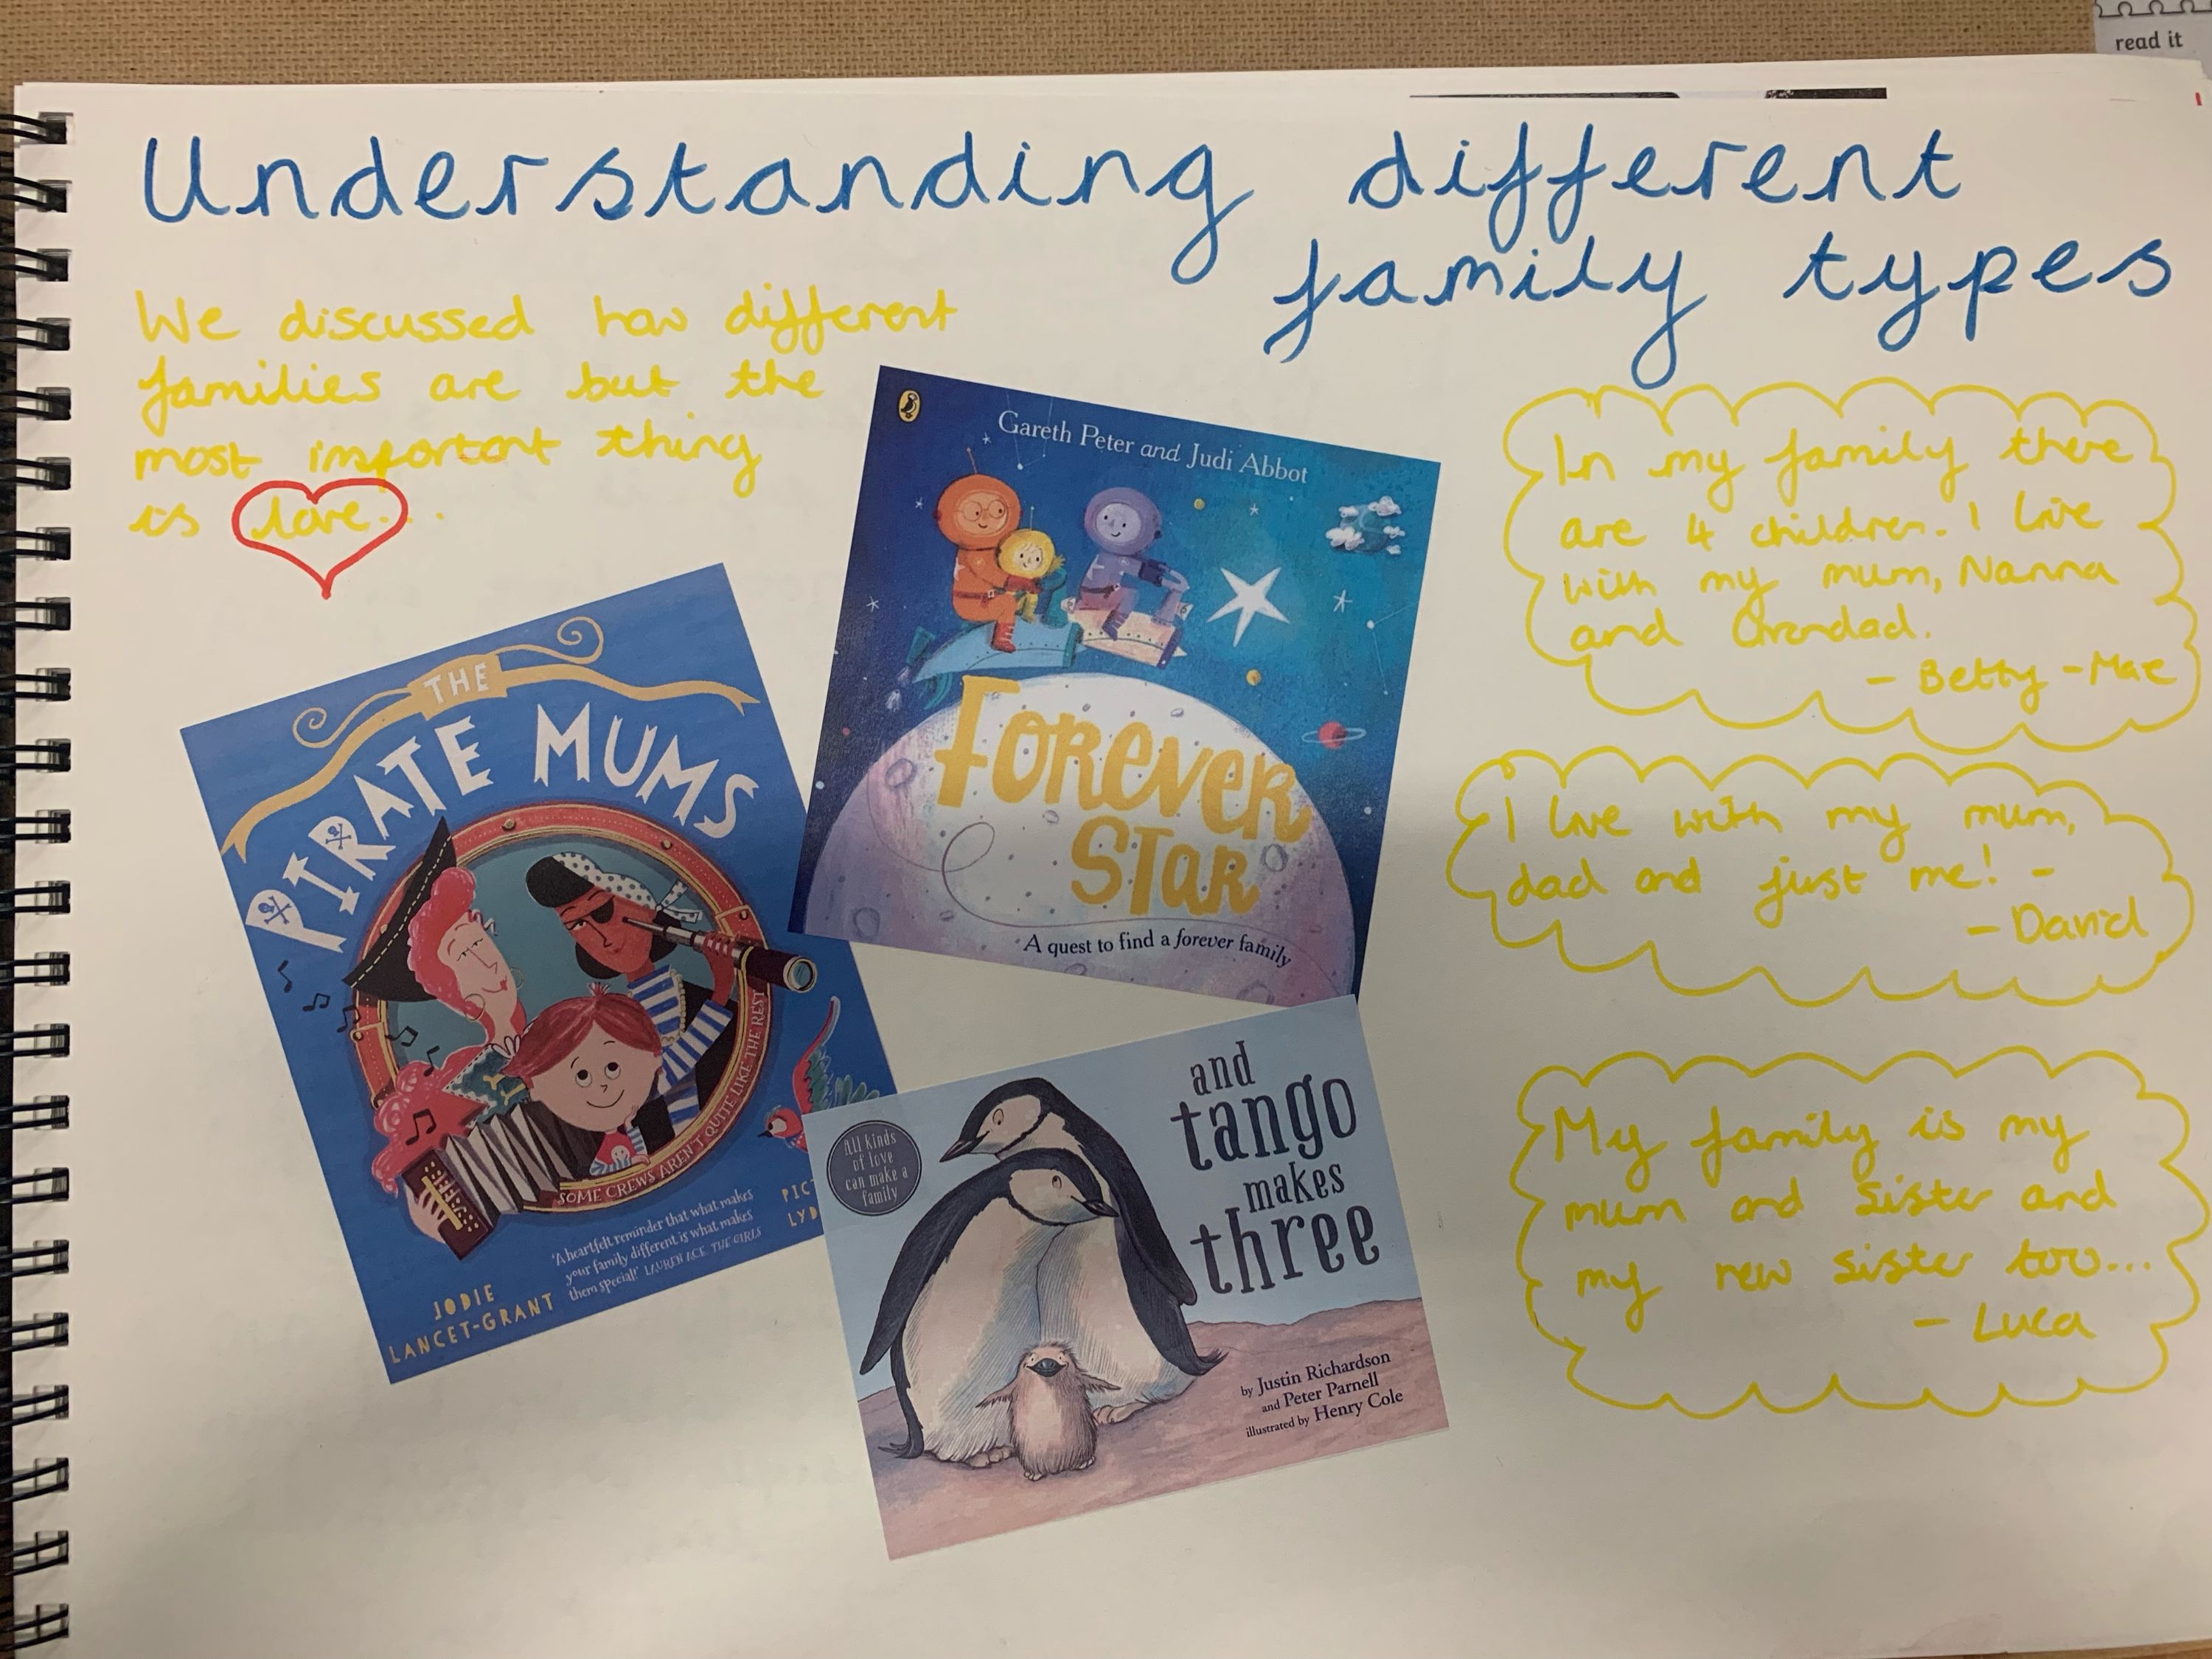 read it
Understanding different
family types
We discussed how different
families are but the
most important thing
is love...
Gareth Peter and Judi Abbot
FOREVER
STAR
A quest to find a forever family
THE
PIRATE MUMS
SOME CREWS AREN'T QUITE LIKE THE REST
'A heartfelt reminder that what makes
your family different is what makes
them special!' LAUREN ACE, THE GIRLS
JODIE
LANCET-GRANT
PICT
LYD
and
tango
makes
three
All kinds
of love
can make a
family
by Justin Richardson
and Peter Parnell
illustrated by Henry Cole
In my family there
are 4 children. I live
with my mum, Nanna
and Grandad.
- Betty-Mae
I live with my mum,
dad and just me! -
- David
My family is my
mum and sister and
my new sister too...
- Luca